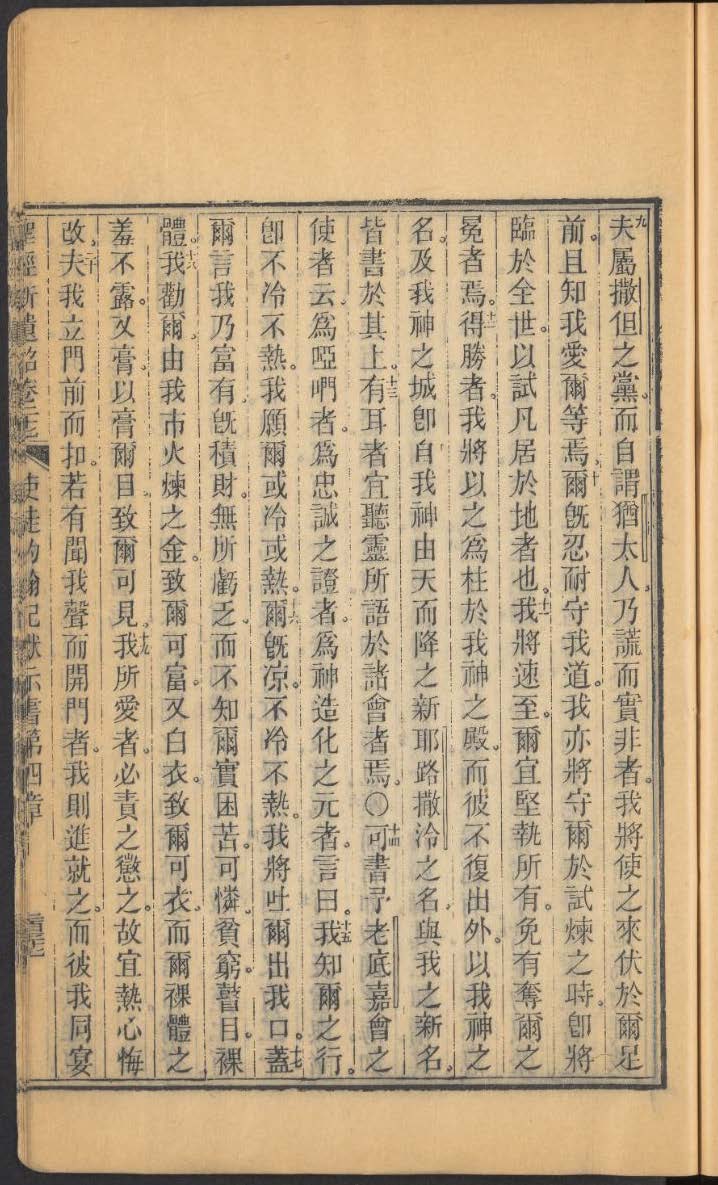 九夫屬撒但之黨。而自謂猶太人乃謊而實非者。我將使之來伏於爾足
前。且知我愛爾等焉。十爾旣忍耐守我道。我亦將守爾於試煉之時。卽將
臨於全世。以試凡居於地者也。十一我將速至。爾宜堅執所有。免有奪爾之
冕者焉。十二得勝者。我將以之爲柱於我神之殿。而彼不復出外。以我神之
名。及我神之城卽自我神由天而降之新耶路撒冷之名。與我之新名。
皆書於其上。十三有耳者宜聽靈所語於諸會者焉。〇十四可書予老底嘉會之
使者云。爲啞們者。爲忠誠之證者。爲神造化之元者。言曰。十五我知爾之行。
卽不冷不熱。我願爾或冷或熱。十六爾旣凉。不冷不熱。我將吐爾出我口。十七蓋
爾言我乃富有旣積財。無所虧乏。而不知爾實困苦。可憐。貧窮。瞽目。裸
體。十八我勸爾。由我市火煉之金。致爾可富。又白衣。致爾可衣。而爾裸體之
羞不露。又膏。以膏爾目。致爾可見。十九我所愛者。必責之懲之。故宜熱心悔
改。二十夫我立門前而扣。若有聞我聲而開門者。我則進就之。而彼我同宴
聖經新遺詔卷 使徒約翰 示書第四章